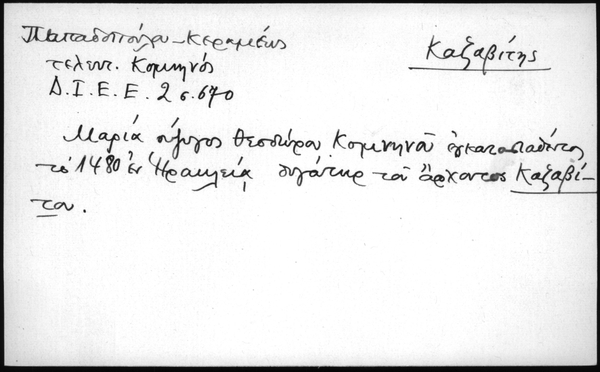 Παπαδοπούλου-Κεραμέως
Καζαβίτης
τελευτ. Κομνηνός
Δ.Ι.Ε.Ε. 2 σ. 670
Μαρία σύζυγος Θεοδώρου Κομνηνοῦ ἐγκατασταθέντος
τό 1480 ἐν Ἡρακλείᾳ θυγάτηρ τοῦ ἄρχοντος Καζαβί-
του.